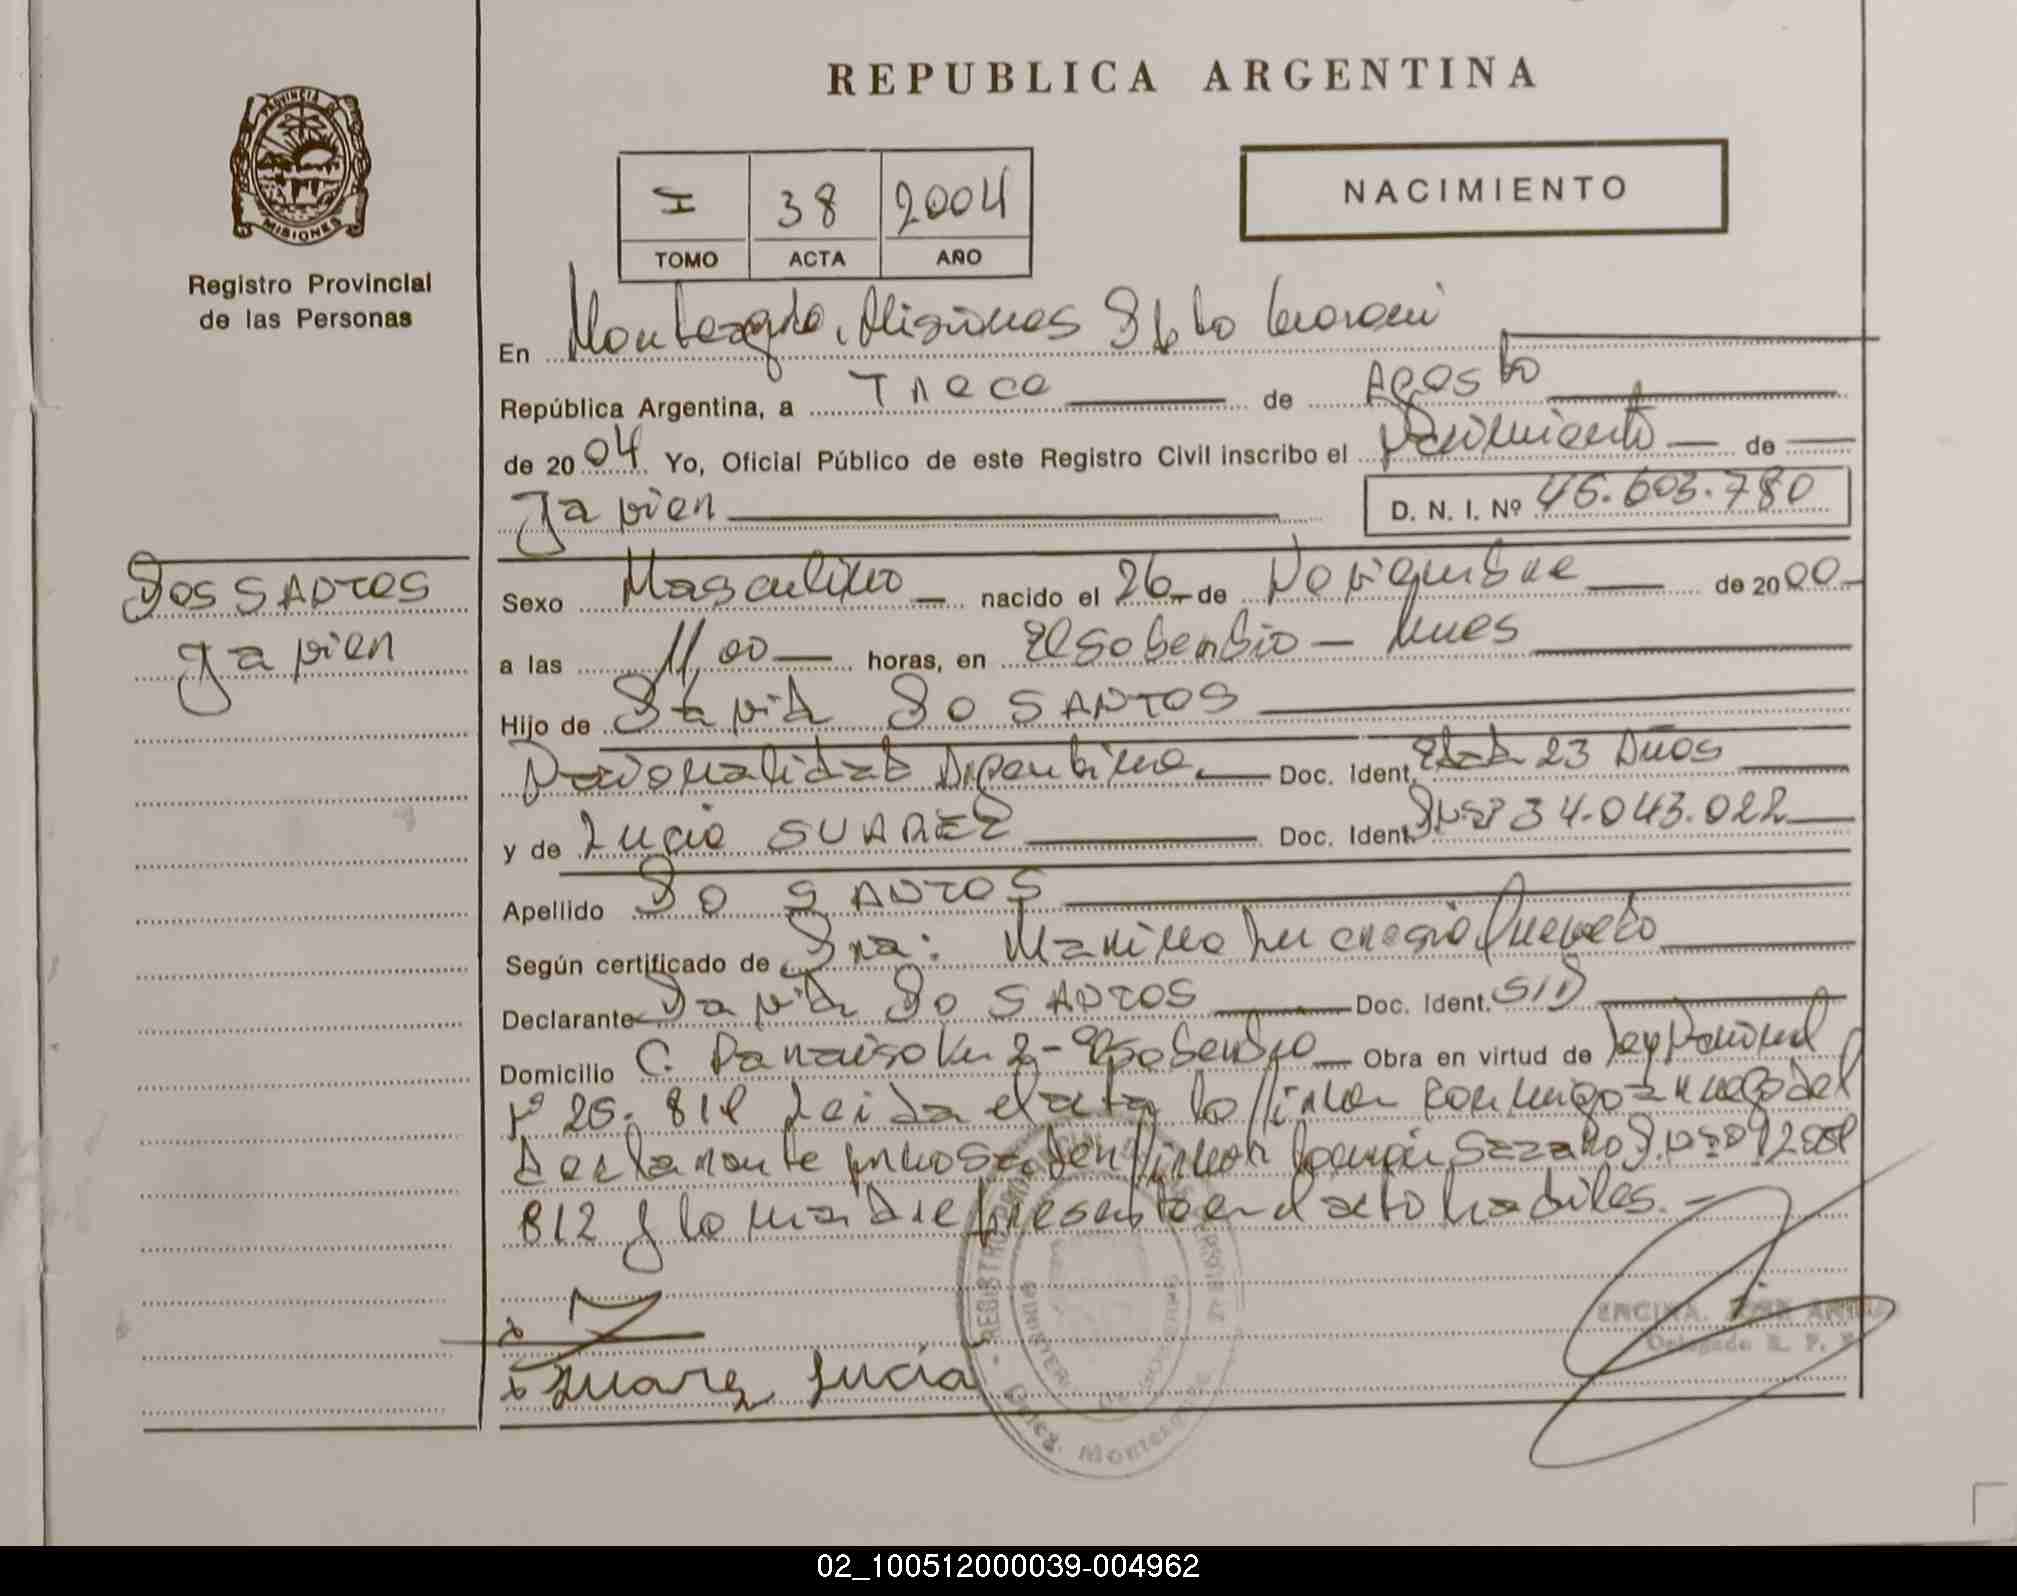 PROVINCIA DE
MISIONES
Registro Provincial
de las Personas
REPUBLICA ARGENTINA
I 38 2004
TOMO ACTA AÑO
NACIMIENTO
En Monteagudo, Misiones Dpto Guaraní
República Argentina, a Trece de Agosto
de 2004 Yo, Oficial Público de este Registro Civil inscribo el Nacimiento de
Javier D. N. I. Nº 45.603.780
DOS SANTOS
Javier
Sexo Masculino nacido el 26 de Noviembre de 2000
a las 11,00 horas, en El Soberbio - Mnes
Hijo de David DO SANTOS
Nacionalidad Argentina Doc. Ident. Edad 23 Años
y de Lucia SUAREZ Doc. Ident. DNI Nº 34.043.022
Apellido DO SANTOS
Según certificado de Sra: Marina Lucrecia Quevedo
Declarante David DO SANTOS Doc. Ident. S/D
Domicilio C. Paraiso Km 2 - El Soberbio Obra en virtud de Ley Nacional
Nº 25.819 Leida el acta la firma conmigo a ruego del
declarante por no saber firmar Ramón D.N.I.
812 y la madre presente en el acto habiles.-
x
x Suarez Lucia
REGISTRO PROVINCIAL DE LAS PERSONAS
MINISTERIO DE GOBIERNO
Deleg. Monteagudo
ENCINA, JOSE
Delegado R. P. P.
02_100512000039-004962